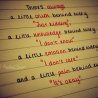 There's always
a little truth behind every
"Just kidding",
a little knowledge behind every
"I don't know",
a little emotion behind every
"I don't care"
and a little pain behind every
"It's okay."